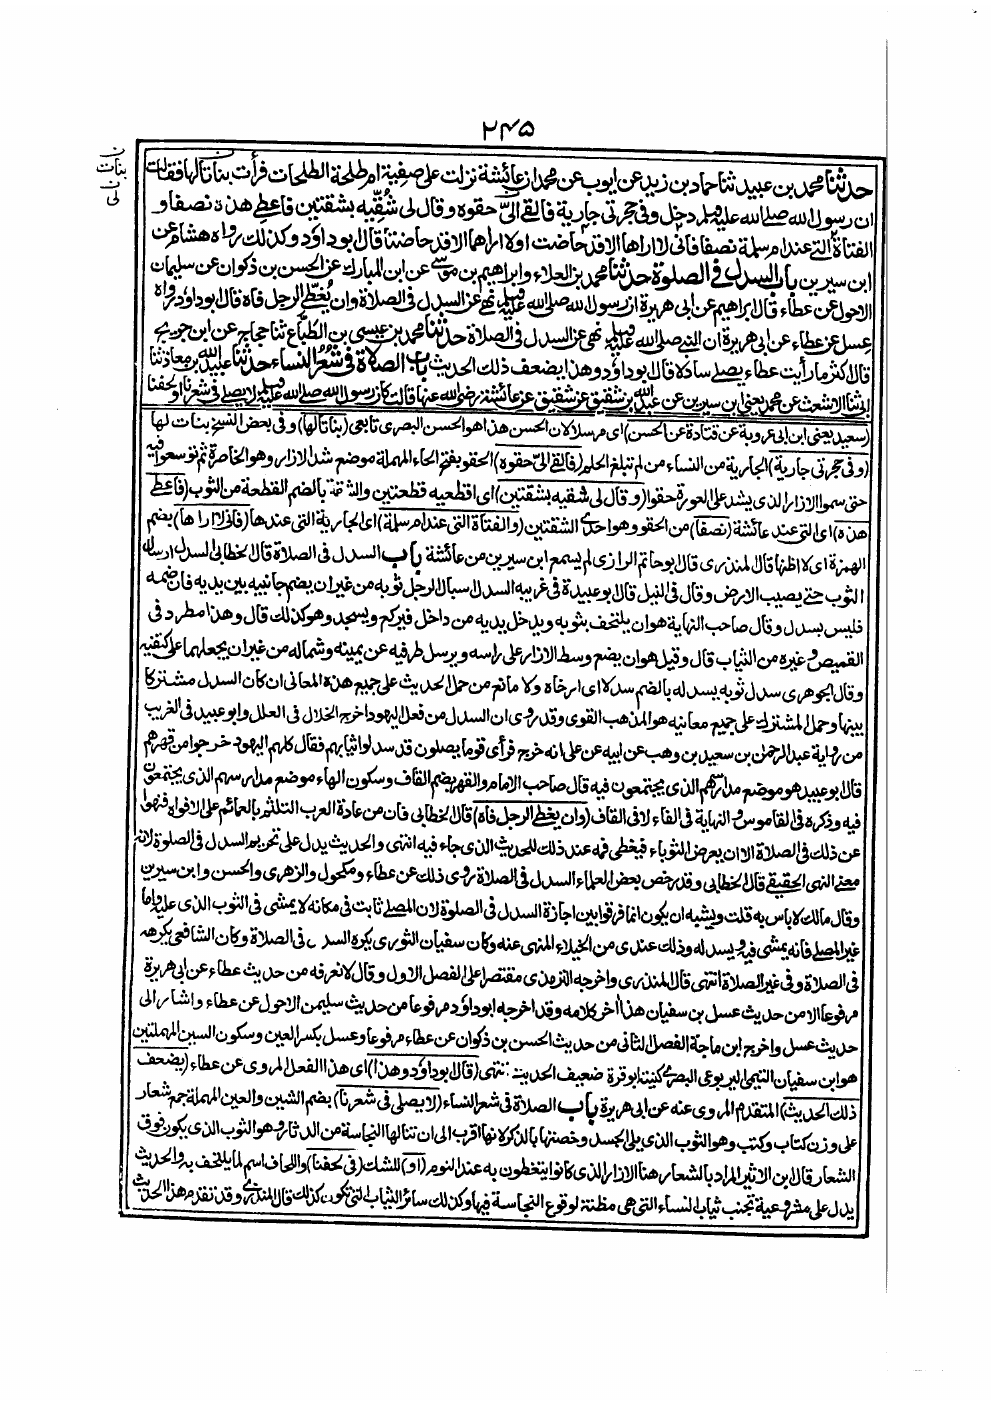 ۲۴۵
ن
بنات
لی
حدثنا محمد بن عبيد ثنا حماد بن زيد عن ايوب عن محمد ان عائشة نزلت على صفية ام طلحة الطلحات فرأت بناتا لها فقالت
ان رسول الله صلى الله عليه وسلم دخل وفي حجرتي جارية فالقى الىّ حقوه وقال لي شُقّيه بشقتين فاعطي هذه نصفا و
الفتاة التي عند ام سلمة نصفا فاني لا اراها الا قد حاضت او لا اراهما الا قد حاضتا قال ابو داود وكذلك رواه هشام عن
ابن سيرين باب السدل في الصلوة حدثنا محمد بن العلاء وابراهيم بن موسى عن ابن المبارك عن الحسن بن ذكوان عن سليمان
الاحول عن عطاء قال ابراهيم عن ابي هريرة ان رسول الله صلى الله عليه وسلم نهى عن السدل في الصلاة وان يُغطّي الرجل فاه قال ابو داود رواه
عسل عن عطاء عن ابي هريرة ان النبي صلى الله عليه وسلم نهى عن السدل في الصلاة حدثنا محمد بن عيسى بن الطبّاع ثنا حجاج عن ابن جريج
قال اكثر ما رأيت عطاء يصلي سادلا قال ابو داود وهذا يضعف ذلك الحديث باب الصلاة في شُعُر النساء حدثنا عبيد الله بن معاذ ثنا
ابي ثنا الاشعث عن محمد يعني ابن سيرين عن عبد الله بن شقيق عن شقيق عن عائشة رضي الله عنها قالت كان رسول الله صلى الله عليه وسلم لا يصلي في شعرنا او لحفنا
(سعيد يعني ابن ابي عروبة عن قتادة عن الحسن) اي مرسلا لان الحسن هذا هو الحسن البصري تابعي (بناتا لها) وفي بعض النسخ بنات لها
(وفي حجرتي جارية) الجارية من النساء من لم تبلغ الحلم (فالقى الىّ حقوه) الحقو بفتح الحاء المهملة موضع شد الازار وهو الخاصرة ثم توسعوا فيه
حتى سموا الازار الذي يشد على العورة حقوا (وقال لي شقيه بشقتين) اي اقطعيه قطعتين والشقة بالضم القطعة من الثوب (فاعطي
هذه) اي التي عند عائشة (نصفا) من الحقو وهو احدى الشقتين (والفتاة التي عند ام سلمة) اي الجارية التي عندها (فاني لا اراها) بضم
الهمزة اي لا اظنها قال المنذري قال ابو حاتم الرازي لم يسمع ابن سيرين من عائشة باب السدل في الصلاة قال الخطابي السدل ارسال
الثوب حتى يصيب الارض وقال في النيل قال ابو عبيدة في غريبه السدل اسبال الرجل ثوبه من غير ان يضم جانبيه بين يديه فان ضمه
فليس بسدل وقال صاحب النهاية هو ان يلتحف بثوبه ويدخل يديه من داخل فيركع ويسجد وهو كذلك قال وهذا مطرد في
القميص وغيره من الثياب قال وقيل هو ان يضع وسط الازار على راسه ويرسل طرفيه عن يمينه وشماله من غير ان يجعلهما على كتفيه
وقال الجوهري سدل ثوبه يسدله بالضم سدلا اي ارخاه ولا مانع من حمل الحديث على جميع هذه المعاني ان كان السدل مشتركا
بينها وحمل المشترك على جميع معانيه هو المذهب القوي وقد روي ان السدل من فعل اليهود اخرج الخلال في العلل وابو عبيد في الغريب
من رواية عبد الرحمان بن سعيد بن وهب عن ابيه عن علي انه خرج فرأى قوما يصلون قد سدلوا ثيابهم فقال كانهم اليهود خرجوا من قهرهم
قال ابو عبيد هو موضع مدارسهم الذي يجتمعون فيه قال صاحب الامام والقهر بضم القاف وسكون الهاء موضع مدارسهم الذي يجتمعون
فيه وذكره في القاموس والنهاية في الفاء لا في القاف (وان يغطي الرجل فاه) قال الخطابي فان من عادة العرب التلثم بالعمائم على الافواه فنهوا
عن ذلك في الصلاة الا ان يعرض الثوباء فيغطي فمه عند ذلك للحديث الذي جاء فيه انتهى والحديث يدل على تحريم السدل في الصلوة لانه
معنى النهي الحقيقي قال الخطابي وقد رخص بعض العلماء السدل في الصلاة روي ذلك عن عطاء ومكحول والزهري والحسن وابن سيرين
وقال مالك لا باس به قلت ويشبه ان يكون انما فرقوا بين اجازة السدل في الصلوة لان المصلي ثابت في مكانه لا يمشي في الثوب الذي عليه واما
غير المصلي فانه يمشي فيه ويسدله وذلك عندي من الخيلاء المنهي عنه وكان سفيان الثوري يكره السدل في الصلاة وكان الشافعي يكرهه
في الصلاة وفي غير الصلاة انتهى قال المنذري واخرجه الترمذي مقتصرا على الفصل الاول وقال لا نعرفه من حديث عطاء عن ابي هريرة
مرفوعا الا من حديث عسل بن سفيان هذا آخر كلامه وقد اخرجه ابو داود مرفوعا من حديث سليمن الاحول عن عطاء واشار الى
حديث عسل واخرج ابن ماجة الفصل الثاني من حديث الحسن بن ذكوان عن عطاء مرفوعا وعسل بكسر العين وسكون السين المهملتين
هو ابن سفيان التيمي اليربوعي البصري كنيته ابو قرة ضعيف الحديث انتهى (قال ابو داود وهذا) اي هذا الفعل المروي عن عطاء (يضعف
ذلك الحديث) المتقدم المروي عنه عن ابي هريرة باب الصلاة في شعر النساء (لا يصلي في شعرنا) بضم الشين والعين المهملة جمع شعار
على وزن كتاب وكتب وهو الثوب الذي يلي الجسد وخصتها بالذكر لانها اقرب الى ان تنالها النجاسة من الدثار وهو الثوب الذي يكون فوق
الشعار قال ابن الاثير المراد بالشعار هنا الازار الذي كانوا يتغطون به عند النوم (او) للشك (في لحفنا) واللحاف اسم لما يلتحف به والحديث
يدل على مشروعية تجنب ثياب النساء التي هي مظنة لوقوع النجاسة فيها وكذلك سائر الثياب التي تكون كذلك قال المنذري وقد تقدم هذا الحديث